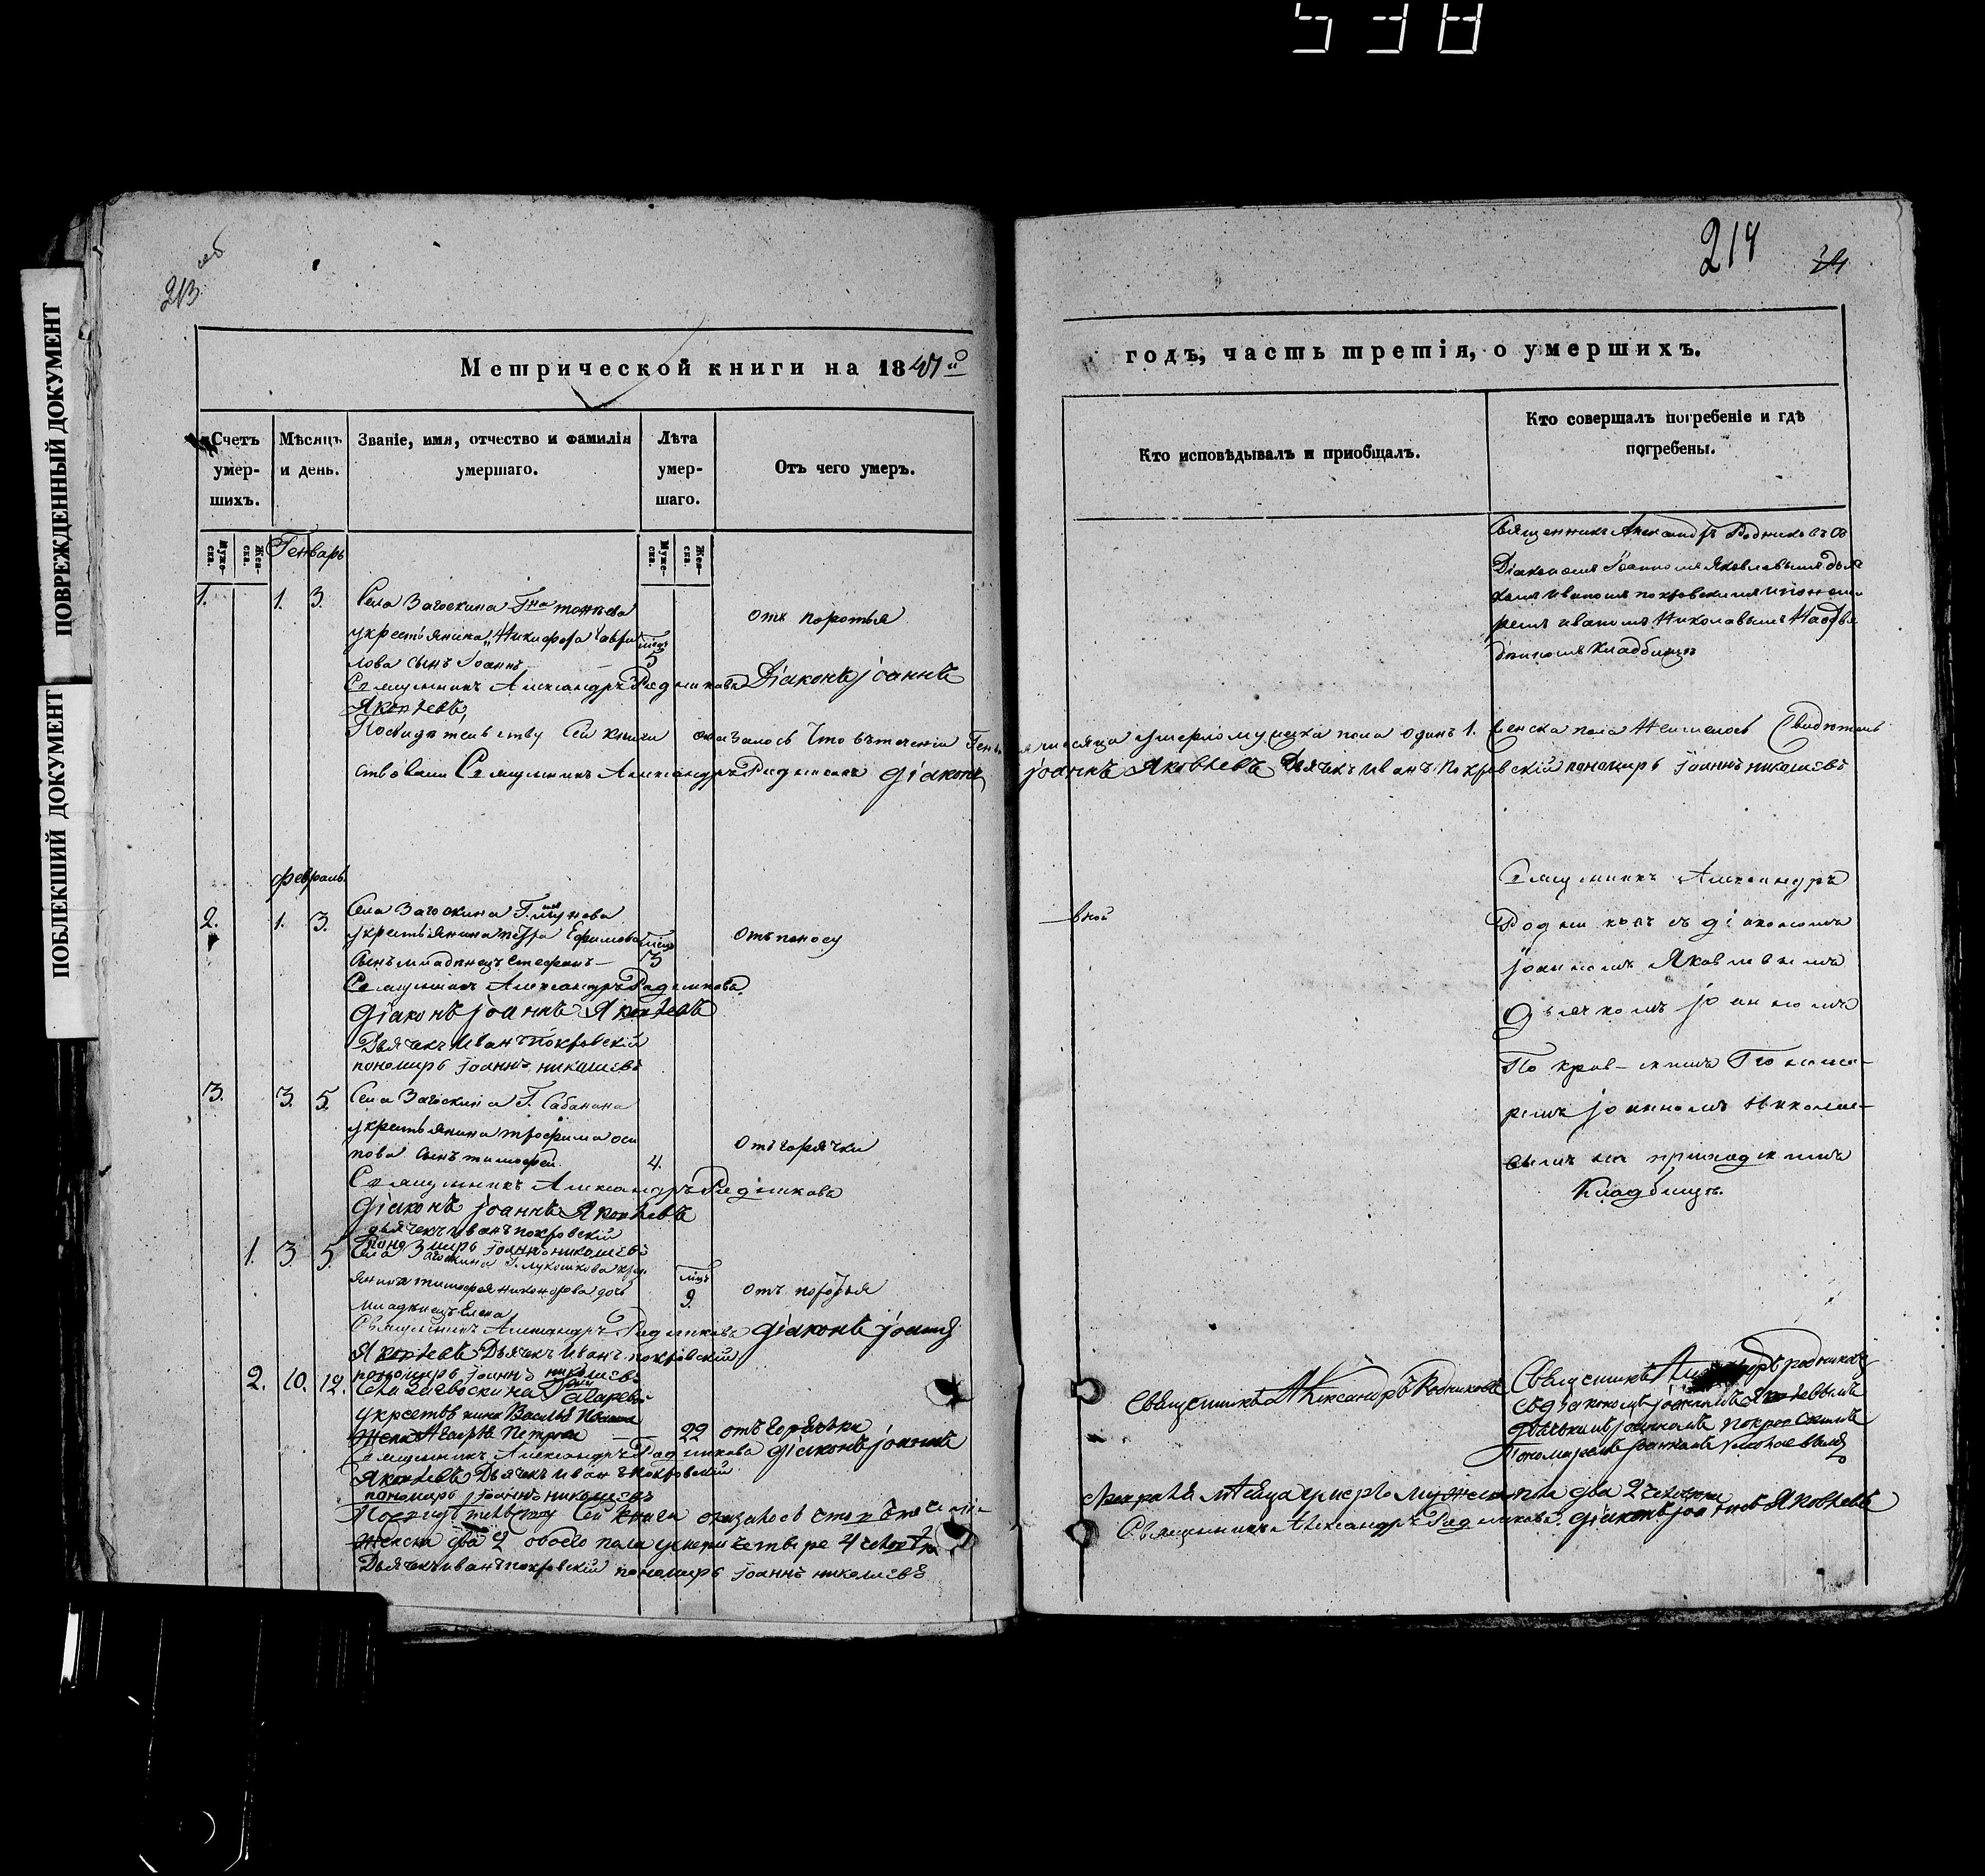 538
ПОВРЕЖДЕННЫЙ ДОКУМЕНТ
ПОБЛЕКШИЙ ДОКУМЕНТ
213 об
214
Метрической книги на 18
годъ, часть третія, о умершихъ.
Счетъ умер-шихъ.
Мѣсяцъ и день.
Званіе, имя, отчество и фамилія умершаго.
Лѣта умер-шаго.
Отъ чего умеръ.
Кто исповѣдывалъ и приобщалъ.
Кто совершалъ погребеніе и гдѣ погребены.
Муже-ска.
Жен-ска.
Муже-ска.
Жен-ска.
Генварь
1. 1. 3. Села Загоскина Гна
укрестьянина Никифора Гаври
лова сынъ Іоаннъ
5
отъ
Священникъ Александръ Родниковъ Діаконъ іоаннъ
Яковлевъ
Священникъ Александръ Родниковъ съ
Діакономъ Іоанномъ Яковлевымъ дья
комъ Иваномъ покровскимъ ипонома
ремъ иваномъ Николавымъ
кладбищѣ
По свидѣтельству сей книги оказалось что втеченіи Генваря месяца умерло мужска пола одинъ 1. женска пола Неимелось Свидѣтель
ствовали Священникъ Александръ Родниковъ діаконъ іоаннъ Яковлевъ Дьячекъ Иванъ Покровскій пономарь іоаннъ николаевъ
февраль
2. 1. 3. Села Загоскина Г.
укрестьянина петра Ефимова
сынъ младенецъ Стефанъ
3
Отъ поносу
Священникъ Александръ Родниковъ
діаконъ іоаннъ Яковлевъ
Дьячекъ Иванъ Покровскій
пономарь іоаннъ николаевъ
Священникъ Александръ
Родниковъ съ діакономъ
іоанномъ Яковлевымъ
Дьячкомъ іоанномъ
Покров-скимъ Понома-
ремъ іоанномъ Николае-
вымъ на приходскомъ
Кладбищѣ.
3. 3. 5. Села Загоскина Г. Сабанина
укрестьянина трофима оси
пова сынъ тимофей.
4.
Отъ горячки
Священникъ Александръ Родниковъ
діаконъ іоаннъ Яковлевъ
дьячекъ иванъ покровскій
пономарь іоаннъ николаевъ
1. 3 5. Села Загоскина Г. Лукошкова крест
янина тимофея никонорова дочь
младенецъ Елена
9.
отъ
Священникъ Александръ Родниковъ діаконъ іоаннъ
Яковлевъ Дьячекъ Иванъ покровскій
пономарь іоаннъ николаевъ
2. 10. 12. Села Загоскина
укрестьянина Василья
жена Петрова
22 отъ Горячьки
Священникъ Александръ Родниковъ діаконъ іоаннъ
Яковлевъ Дьячекъ Иванъ покровскій
пономарь іоаннъ николаевъ
Священникъ Александръ Родниковъ
Священникъ Александръ родниковъ
съ діакономъ іоанномъ Яковлевымъ
дьячькомъ іоанномъ покровскимъ
Пономаремъ іоанномъ николаевымъ
По свидѣтельству сей книги оказалось что втечені-
февраля мѣсяца умерло мужска пола два 2 человѣка
женска два 2 обоего пола умерли четыре 4 человѣка
Священникъ Александръ Родниковъ. діаконъ іоаннъ Яковлевъ
Дьячекъ иванъ покровскій пономарь іоаннъ николаевъ